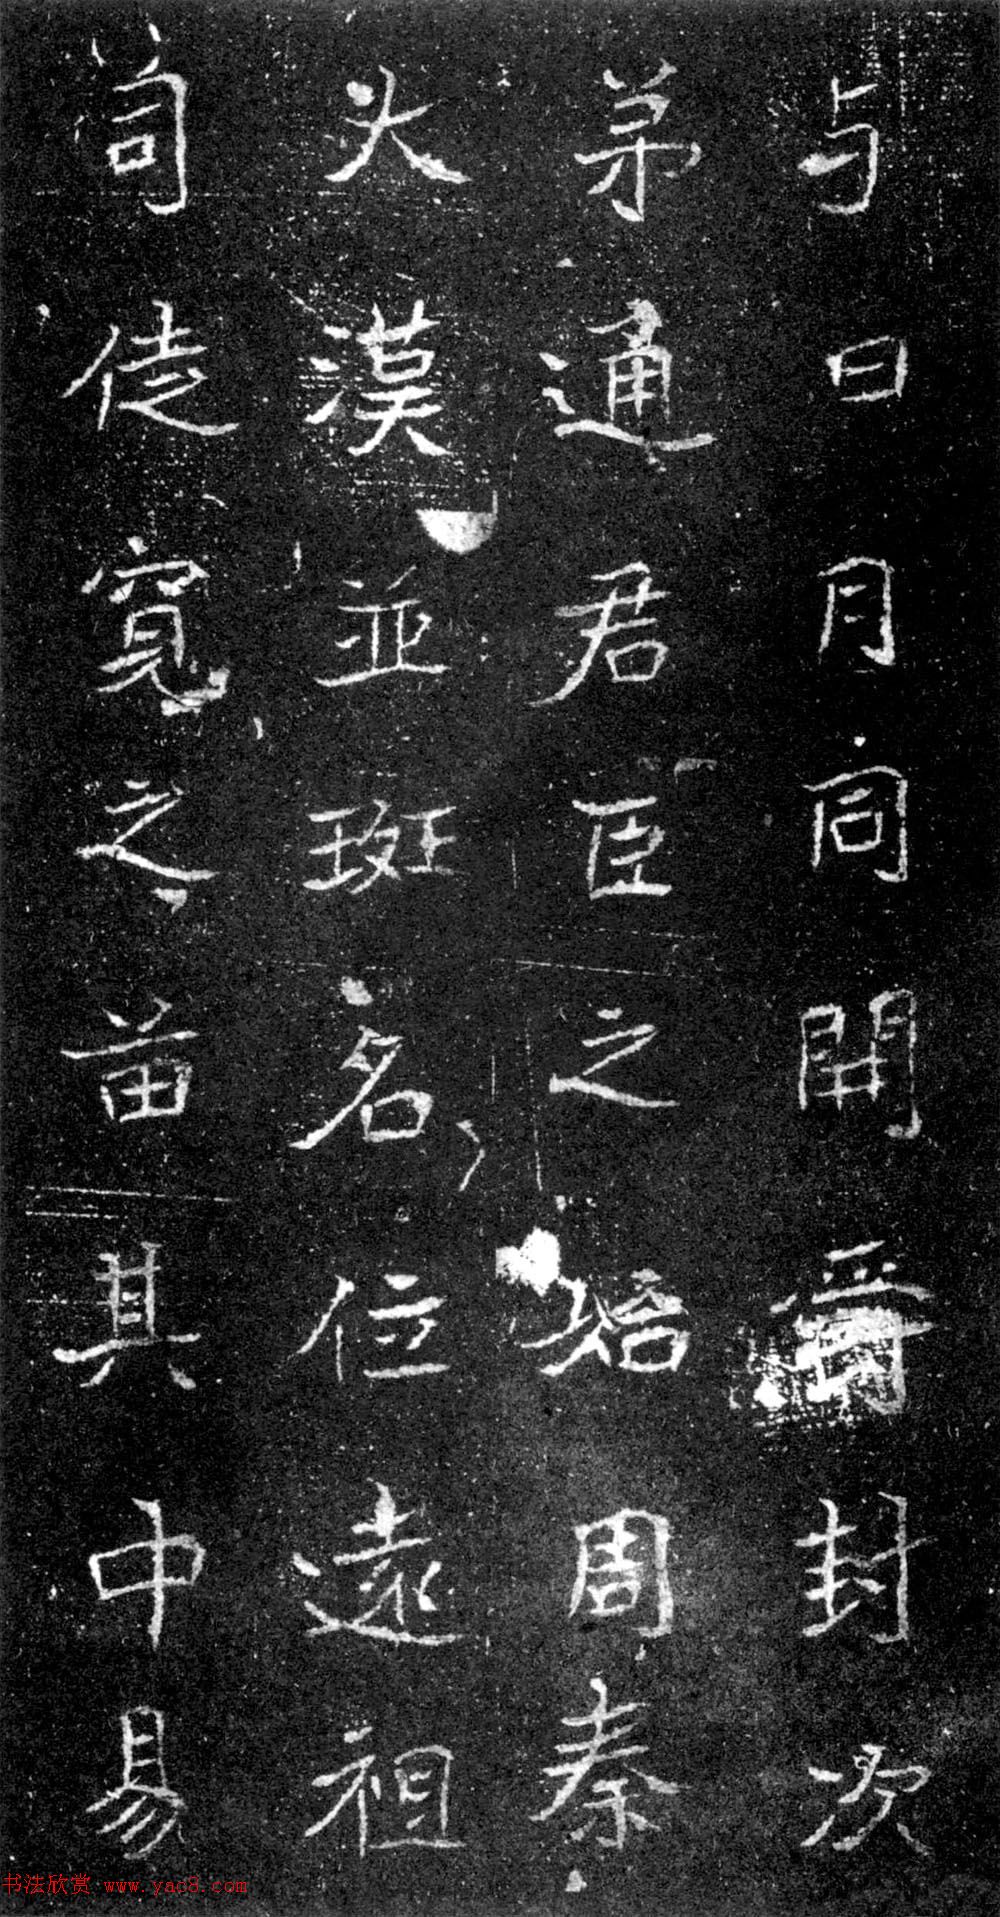 与日月同開爵封次
弟通君臣之始周秦
大漢並斑名位遠祖
司徒寬之苗其中易
书法欣赏 www.yac8.com